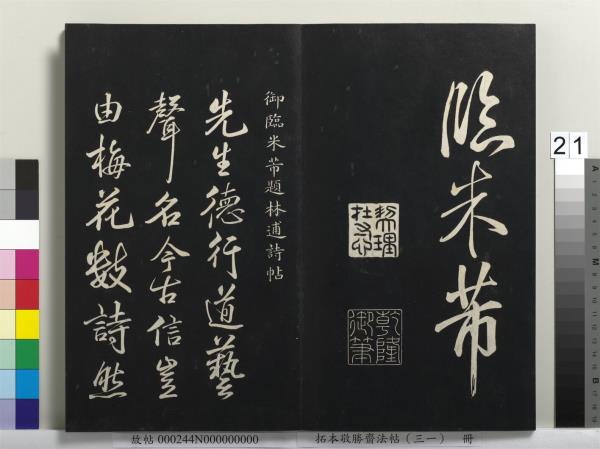 臨米芾
契理在寸心
乾隆御筆
御臨米芾題林逋詩帖
先生德行道藝
聲名今古信豈
由梅花數詩然
21
故帖 000244N000000000
拓本敬勝齋法帖（三一） 冊